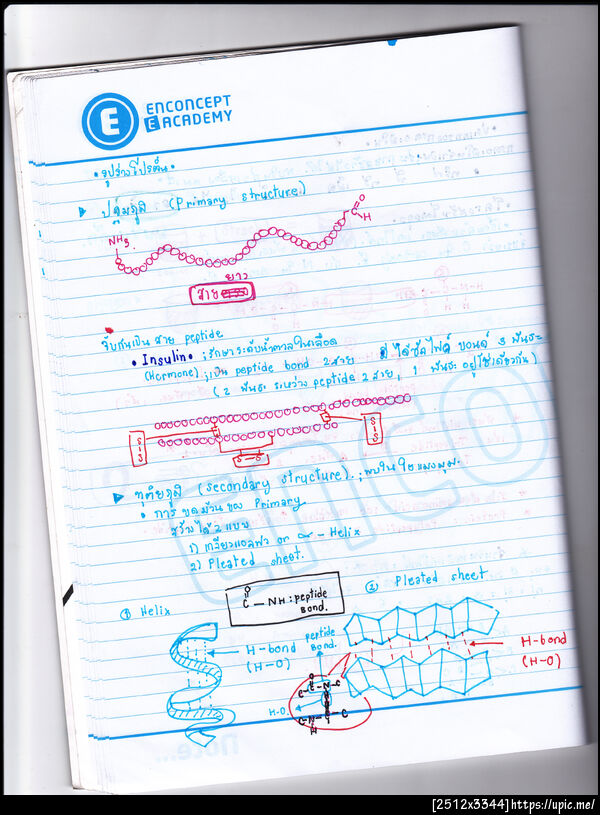 E
ENCONCEPT
E ACADEMY
• รูปร่างโปรตีน •
▶ ปฐมภูมิ (Primary structure)
NH₃
O
C
H
สายยาว
จับกันเป็น สาย peptide
• Insulin • ; รักษาระดับน้ำตาลในเลือด
(Hormone) ; เป็น peptide bond 2 สาย มีไดซัลไฟด์ บอนด์ 3 พันธะ
(2 พันธะ ระหว่าง peptide 2 สาย, 1 พันธะ อยู่โซ่เดียวกัน)
S S
S-S
S S
▶ ทุติยภูมิ (secondary structure). ; พบใน ใยแมงมุม.
• การ ขดม้วน ของ Primary
สร้างได้ 2 แบบ
1) เกลียวแอลฟา or α - Helix
2) Pleated sheet.
O
C — NH : peptide
Bond.
① Helix
② Pleated sheet
H-bond
(H-O)
peptide
Bond.
H-bond
(H-O)
O
C - C - N - C
H-O
C - N - C - C
H
note...
[2512x3344]https://upic.me/